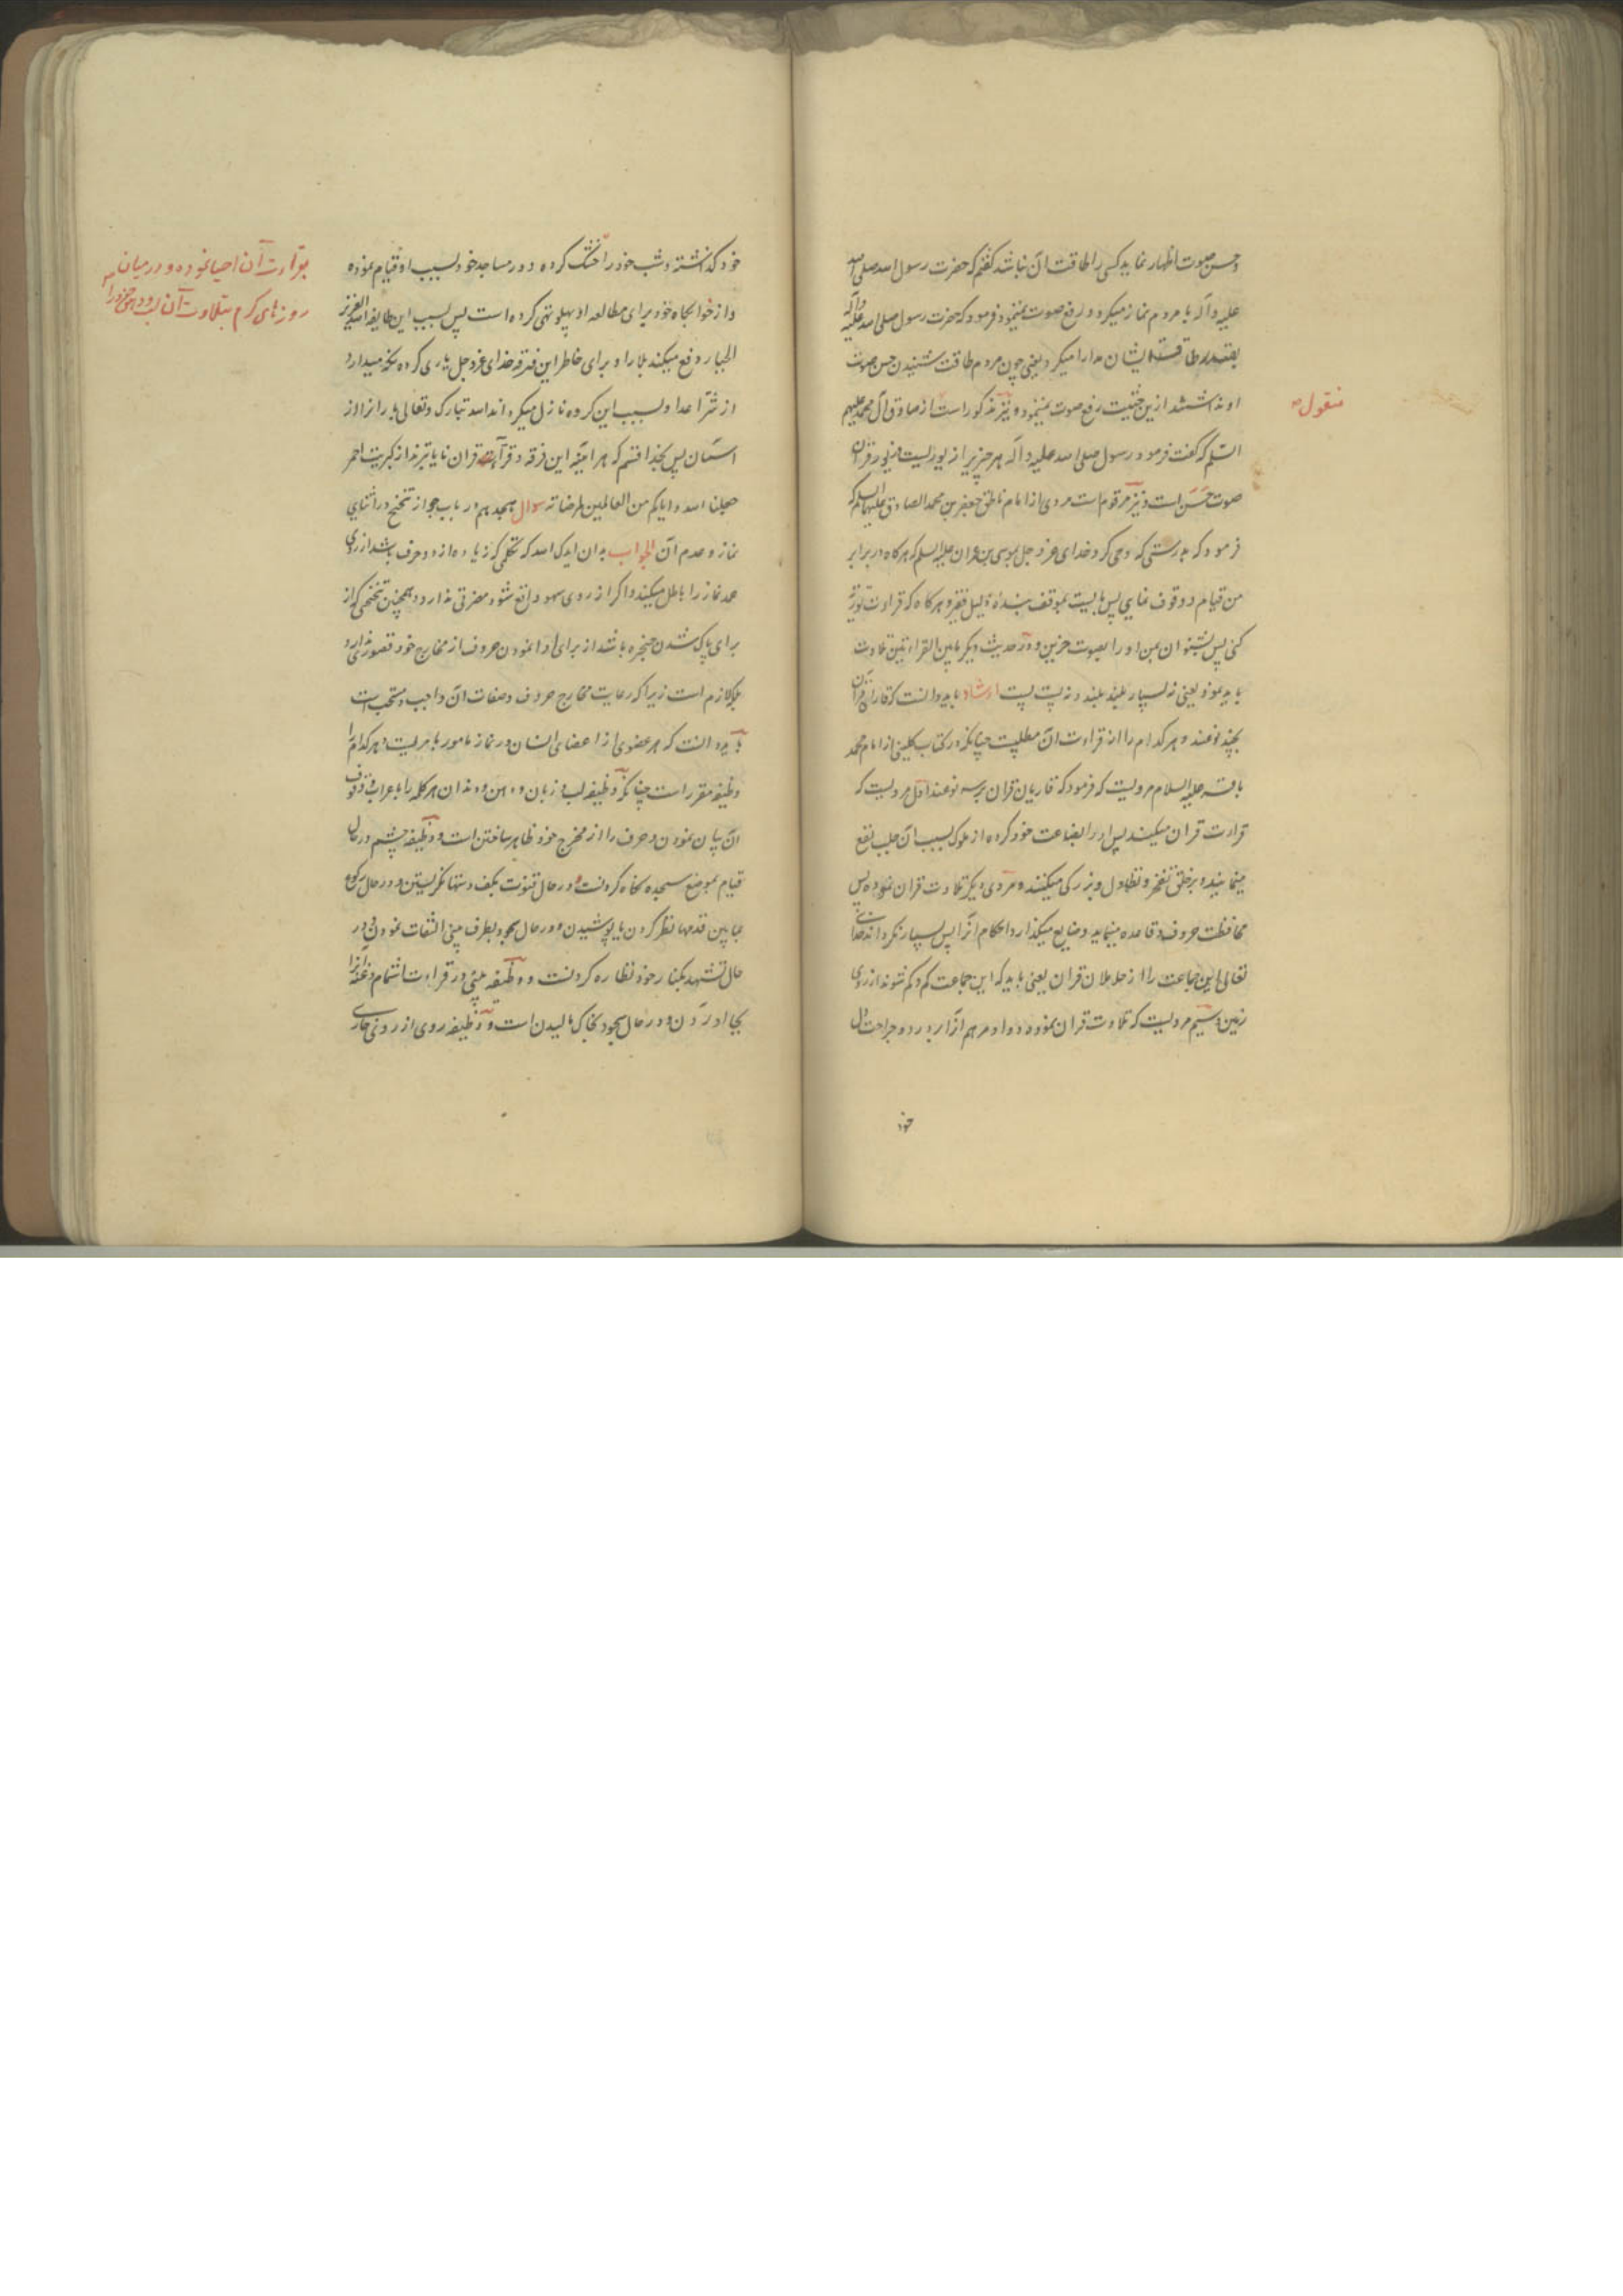 وحسن صوت اظهار نماید کسی را طاقت آن نباشد گفتم که حضرت رسول الله صلی الله
علیه وآله با مردم نماز میکرد و رفع صوت مینمود فرمود که حضرت رسول صلی الله علیه وآله
بقدر طاقت ایشان مدارا میکرد یعنی چون مردم طاقت شنیدن حسن صوت
او نداشتند ازین حیثیت رفع صوت مینمود و نیز مذکور است از صادق آل محمد علیهم
منقول
السلم که گفت فرمود رسول صلی الله علیه وآله هر چیزی را زیوریست و زیور قرآن
صوت حسن است و نیز مرقوم است مروی از امام ناطق جعفر بن محمد الصادق علیهما السلم که
فرمود که بدرستی که وحی کرد خدای عز و جل بموسی بن عمران علیه السلم که هرگاه در برابر
من قیام و وقوف نمایی پس بایست بموقف بنده ذلیل فقیر و هرگاه که قراءت توریة
کنی پس بشنوان بمن او را بصوت حزین و در حدیث دیگر مابین القراءتین تلاوت
باید نمود یعنی نه بسیار بلند بلند و نه پست پست ارشاد باید دانست که قاریان قرآن
بچند نوعند و هر کدام را از قراءت آن مطلبیست چنانکه در کتاب کلینی از امام محمد
باقر علیه السلام مرویست که فرمود که قاریان قرآن بر سه نوعند اول مردیست که
قراءت قرآن میکند پس او را بضاعت خود کرده از ملوک بسبب آن جلب نفع
مینماید و بر خلق تفخر و تطاول و بزرگی میکند و مردی دیگر تلاوت قرآن نموده پس
محافظت حروف و قاعده مینماید و ضایع میگذارد احکام آنرا پس بسیار نگرداند خدای
تعالی این جماعت را از حاملان قرآن یعنی باید که این جماعت کم و کم شوند از روی
زمین و سیم مردیست که تلاوت قرآن نموده و دوا و مرهم آنرا بر درد و جراحت دل
خود
خود گذاشته و شب خود را خشک کرده و در مساجد خود بسبب او قیام نموده
بقراءت آن احیا نموده و در میان
روزهای گرم بتلاوت آن لب و دهن خود را
و از خوابگاه خود برای مطالعه او پهلو تهی کرده است پس بسبب این طایفه الله العزیز
الجبار دفع میکند بلا را و برای خاطر این فرقه خدای عز و جل یاری کرده نگه میدارد
از شر اعدا و بسبب این گروه نازل میگرداند الله تبارک وتعالی باران را از
آسمان پس بخدا قسم که هر آینه این فرقه در قراءت قرآن نایاب‌ترند از کبریت احمر
جعلنا الله وایاکم من العالمین بمرضاته سوال هیجدهم در باب جواز تنحنح در اثنای
نماز و عدم آن الجواب بدان ایدک الله که تکلمی که زیاده از دو حرف باشد از روی
عمد نماز را باطل میکند و اگر از روی سهو واقع شود مضرتی ندارد و همچنین تنحنحی که از
برای پاک شدن حنجره باشد از برای ادا نمودن حروف از مخارج خود قصوری ندارد
بلکه لازم است زیرا که رعایت مخارج حروف و صفات آن واجب و مستحب است
باید دانست که هر عضوی از اعضای انسان در نماز مامور بامریست و هر کدام را
وظیفه مقرر است چنانکه وظیفه لب و زبان و دهن و دندان هر کلمه را باعراب و وقوف
آن بیان نمودن و حرف را از مخرج خود ظاهر ساختن است و وظیفه چشم در حال
قیام بموضع سجده نگاه کردنست و در حال قنوت بکف دستها نگریستن و در حال رکوع
بمابین قدمها نظر کردن یا پوشیدن و در حال سجود بطرف بینی التفات نمودن و در
حال تشهد بکنار خود نظاره کردنست و وظیفه بینی در قراءت اشمام و غنه را
بجا آوردن و در حال سجود بخاک مالیدن است و وظیفه روی از روی